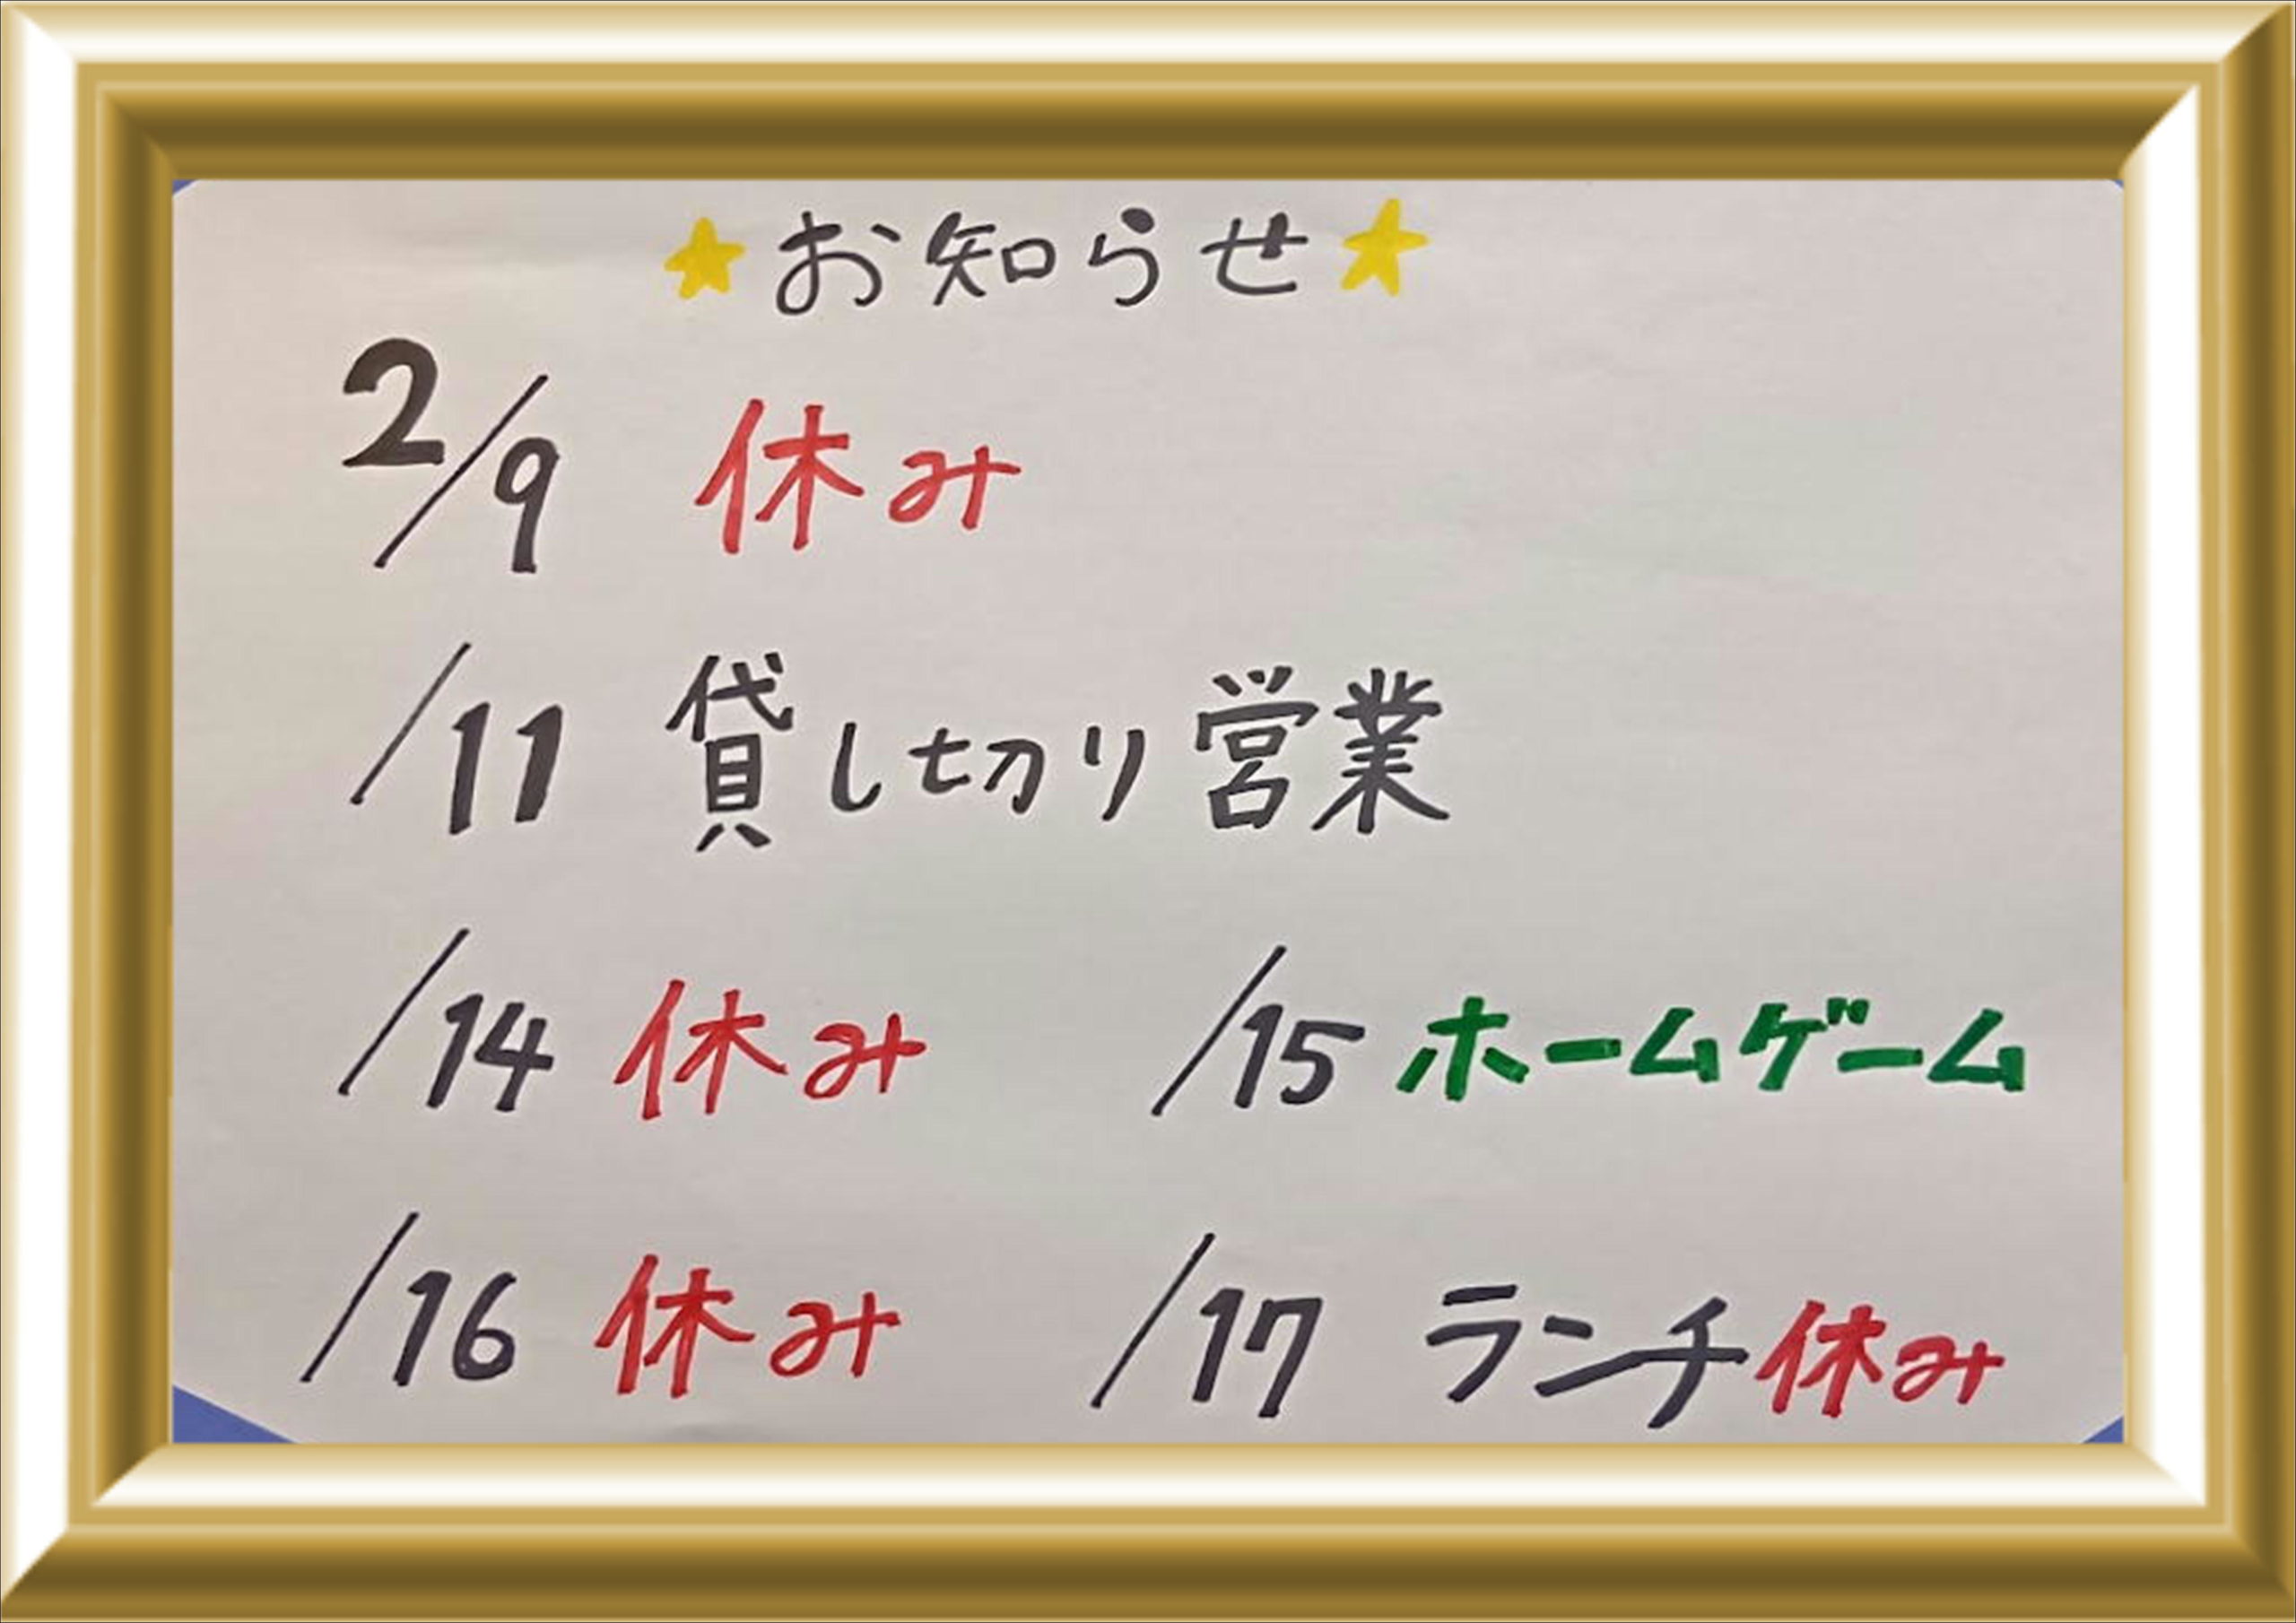 ★お知らせ★
2/9 休み
/11 貸し切り営業
/14 休み /15 ホームゲーム
/16 休み /17 ランチ休み